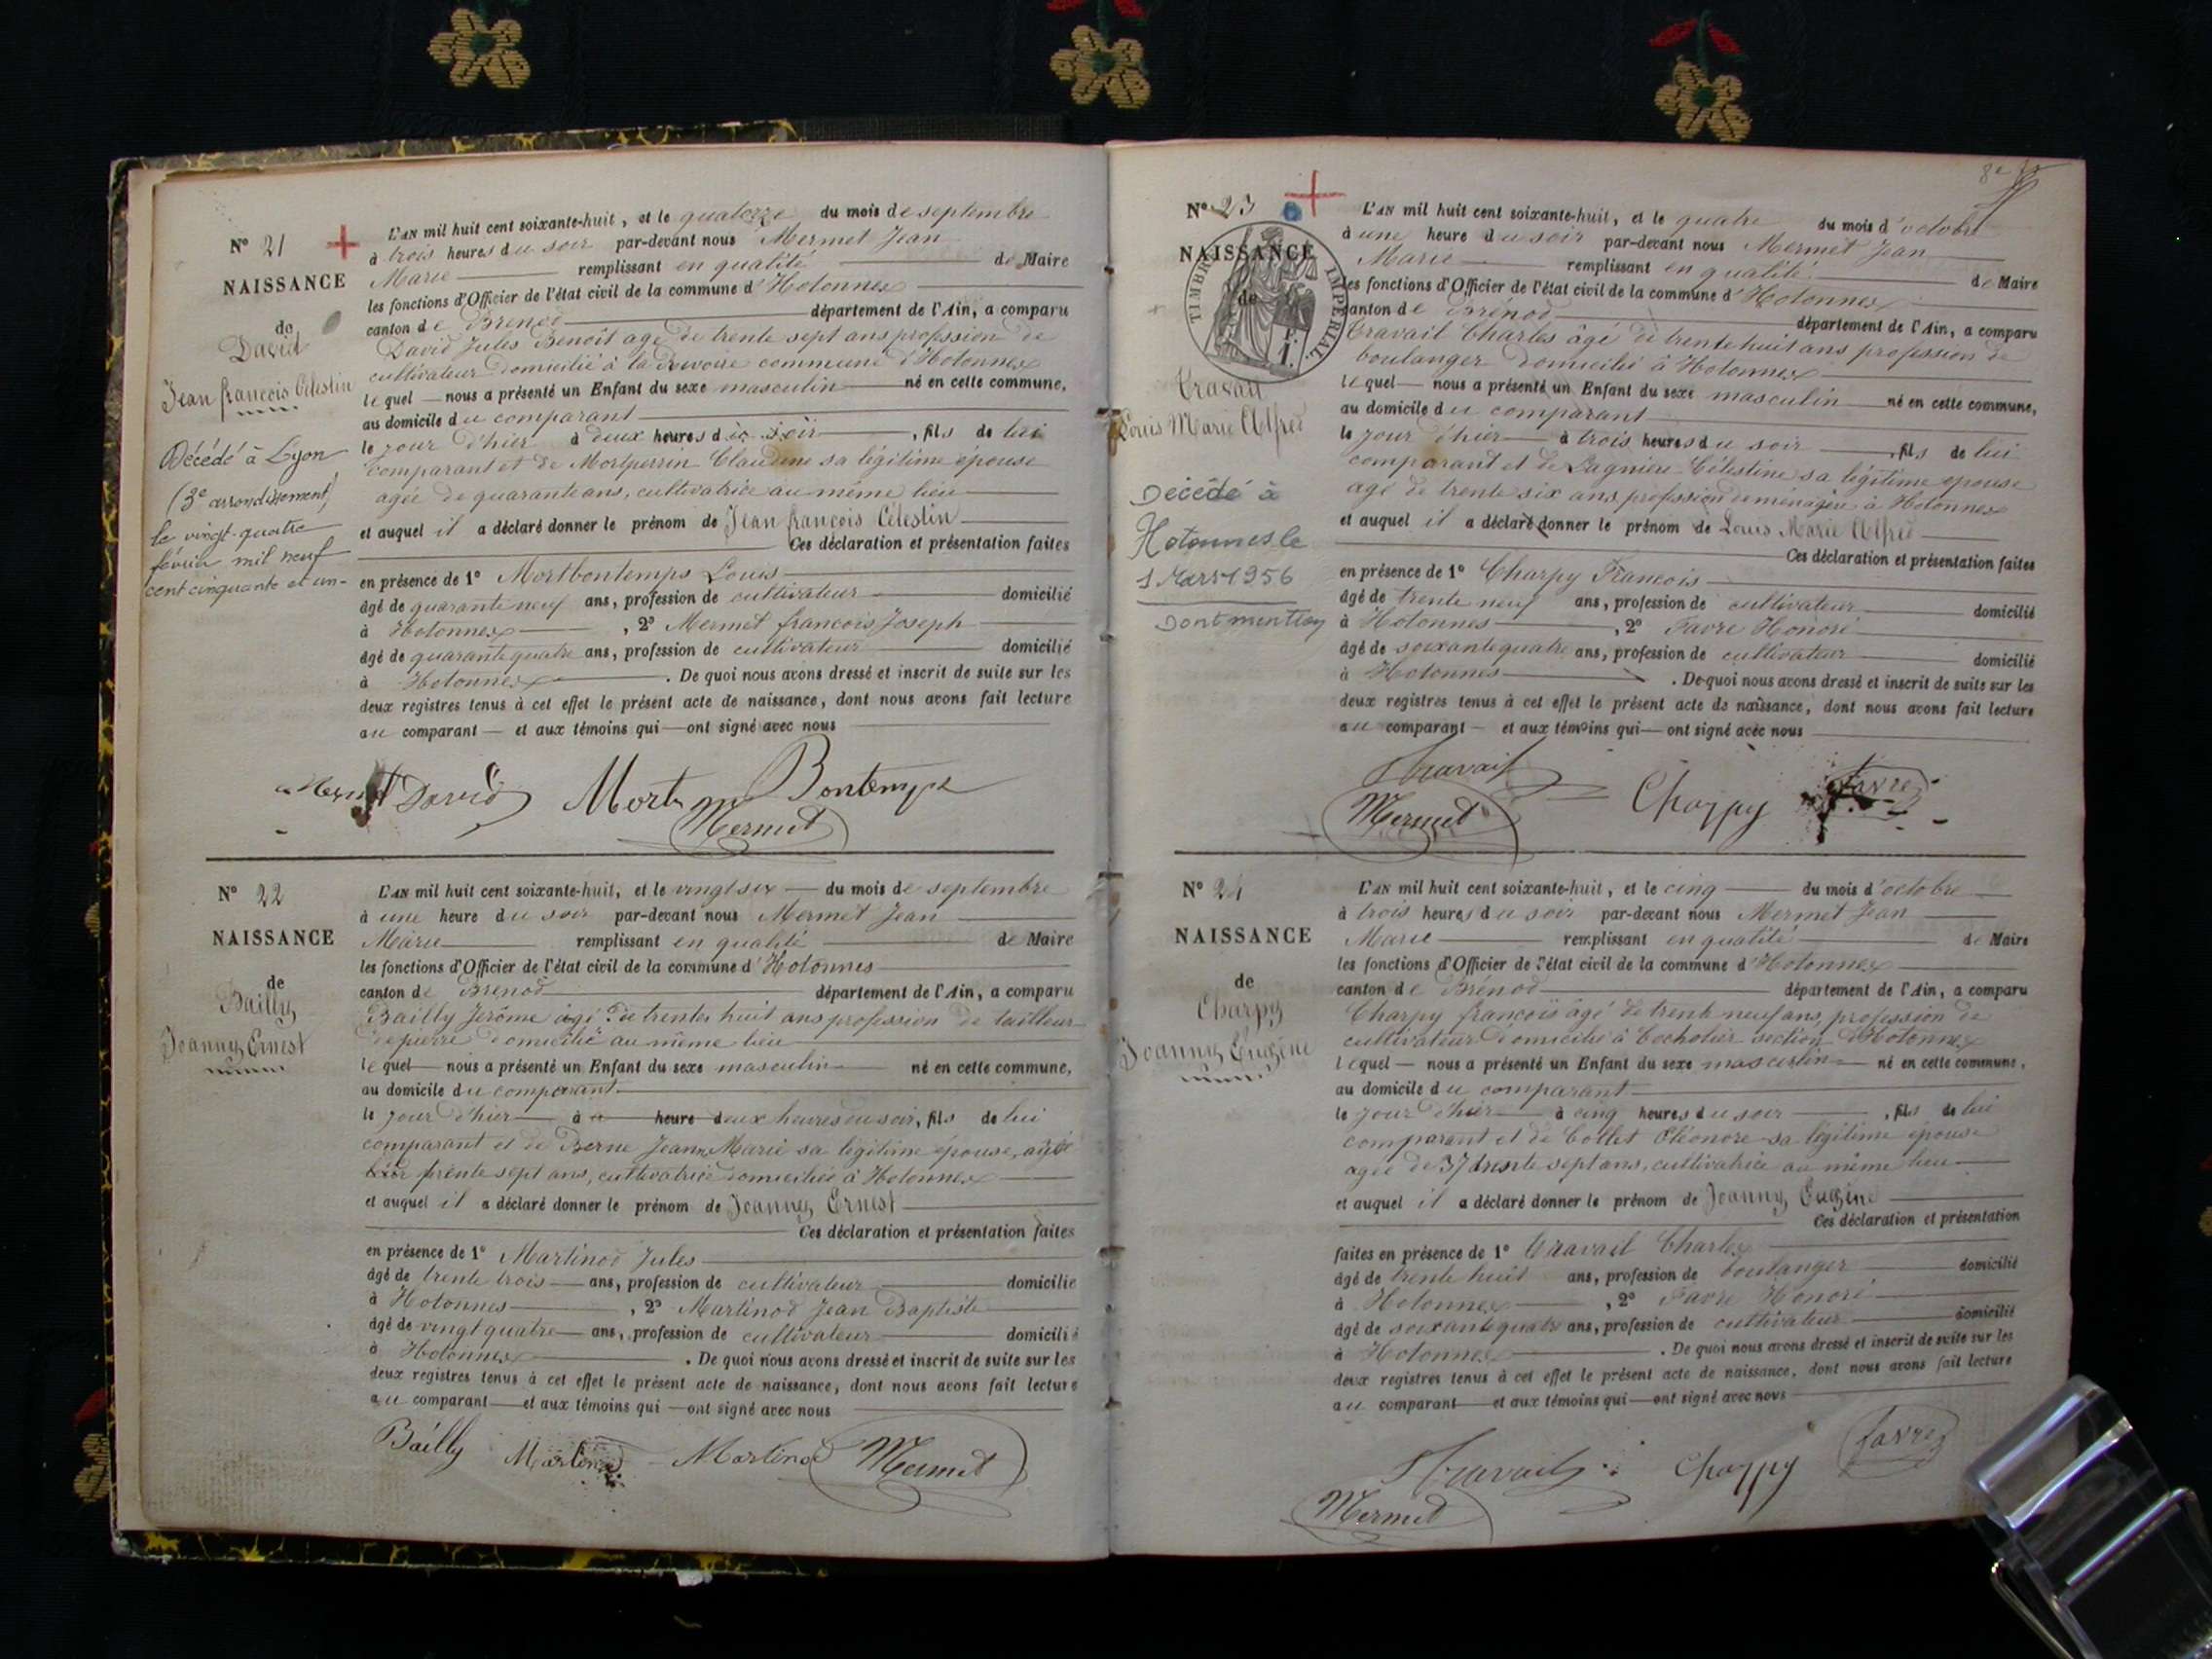 N° 21
NAISSANCE
de
David
Jean françois Célestin
Décédé à Lyon
(3e arrondissement)
le vingt-quatre
février mil neuf
cent cinquante et un-
L'AN mil huit cent soixante-huit, et le quatorze du mois de septembre
à trois heures du soir par-devant nous Mermet Jean
Marie remplissant en qualité de Maire
les fonctions d'Officier de l'état civil de la commune d'Hotonnes
canton de Brenod département de l'Ain, a comparu
David Jules Benoît agé de trente sept ans profession de
cultivateur domicilié à la commune d'Hotonnes
lequel nous a présenté un Enfant du sexe masculin né en cette commune,
au domicile du comparant
le jour d'hier à deux heures du soir, fils de lui
comparant et de Mortperrin Claudine sa légitime épouse
agée de quarante ans, cultivatrice au même lieu
et auquel il a déclaré donner le prénom de Jean françois Célestin
Ces déclaration et présentation faites
en présence de 1° Mortbontemps Louis
âgé de quarante neuf ans, profession de cultivateur domicilié
à Hotonnes, 2° Mermet françois Joseph
âgé de quarante quatre ans, profession de cultivateur domicilié
à Hotonnes. De quoi nous avons dressé et inscrit de suite sur les
deux registres tenus à cet effet le présent acte de naissance, dont nous avons fait lecture
au comparant et aux témoins qui ont signé avec nous
Mermet David Mort Bontemps
Mermet
N° 22
NAISSANCE
de
Bailly
Joanny Ernest
L'AN mil huit cent soixante-huit, et le vingt six du mois de septembre
à une heure du soir par-devant nous Mermet Jean
Marie remplissant en qualité de Maire
les fonctions d'Officier de l'état civil de la commune d'Hotonnes
canton de Brenod département de l'Ain, a comparu
Bailly Jérôme agé de trente huit ans profession de tailleur
de pierre domicilié au même lieu
lequel nous a présenté un Enfant du sexe masculin né en cette commune,
au domicile du comparant
le jour d'hier à heure deux heures du soir, fils de lui
comparant et de Berne Jeanne Marie sa légitime épouse, agée
trente sept ans, cultivatrice domiciliée à Hotonnes
et auquel il a déclaré donner le prénom de Joanny Ernest
Ces déclaration et présentation faites
en présence de 1° Martinod Jules
âgé de trente trois ans, profession de cultivateur domicilié
à Hotonnes, 2° Martinod Jean Baptiste
âgé de vingt quatre ans, profession de cultivateur domicilié
à Hotonnes. De quoi nous avons dressé et inscrit de suite sur les
deux registres tenus à cet effet le présent acte de naissance, dont nous avons fait lecture
au comparant et aux témoins qui ont signé avec nous
Bailly Martinod Martinod Mermet
N° 23
NAISSANCE
de
TIMBRE IMPERIAL
Travail
Louis Marie Alfred
Décédé à
Hotonnes le
1 Mars 1956
Dont mention
L'AN mil huit cent soixante-huit, et le quatre du mois d'octobre
à une heure du soir par-devant nous Mermet Jean
Marie remplissant en qualité de Maire
les fonctions d'Officier de l'état civil de la commune d'Hotonnes
canton de Brénod département de l'Ain, a comparu
Travail Charles âgé de trente huit ans profession de
boulanger domicilié à Hotonnes
lequel nous a présenté un Enfant du sexe masculin né en cette commune,
au domicile du comparant
le jour d'hier à trois heures du soir, fils de lui
comparant et de Lagnière Célestine sa légitime épouse
agé de trente six ans, profession de menagère à Hotonnes
et auquel il a déclaré donner le prénom de Louis Marie Alfred
Ces déclaration et présentation faites
en présence de 1° Charpy François
âgé de trente neuf ans, profession de cultivateur domicilié
à Hotonnes, 2° Favre Honoré
âgé de soixante quatre ans, profession de cultivateur domicilié
à Hotonnes. De quoi nous avons dressé et inscrit de suite sur les
deux registres tenus à cet effet le présent acte de naissance, dont nous avons fait lecture
au comparant et aux témoins qui ont signé avec nous
Travail Charpy Favre
Mermet
N° 24
NAISSANCE
de
Charpy
Joanny Eugène
L'AN mil huit cent soixante-huit, et le cinq du mois d'octobre
à trois heures du soir par-devant nous Mermet Jean
Marie remplissant en qualité de Maire
les fonctions d'Officier de l'état civil de la commune d'Hotonnes
canton de Brénod département de l'Ain, a comparu
Charpy françois âgé de trente neuf ans, profession de
cultivateur domicilié à section d'Hotonnes
lequel nous a présenté un Enfant du sexe masculin né en cette commune,
au domicile du comparant
le jour d'hier à cinq heures du soir, fils de lui
comparant et de Collet Eléonore sa légitime épouse
agée de 37 trente sept ans, cultivatrice au même lieu
et auquel il a déclaré donner le prénom de Joanny Eugène
Ces déclaration et présentation
faites en présence de 1° Travail Charles
âgé de trente huit ans, profession de boulanger domicilié
à Hotonnes, 2° Favre Honoré
âgé de soixante quatre ans, profession de cultivateur domicilié
à Hotonnes. De quoi nous avons dressé et inscrit de suite sur les
deux registres tenus à cet effet le présent acte de naissance, dont nous avons fait lecture
au comparant et aux témoins qui ont signé avec nous
Travail Charpy favre
Mermet